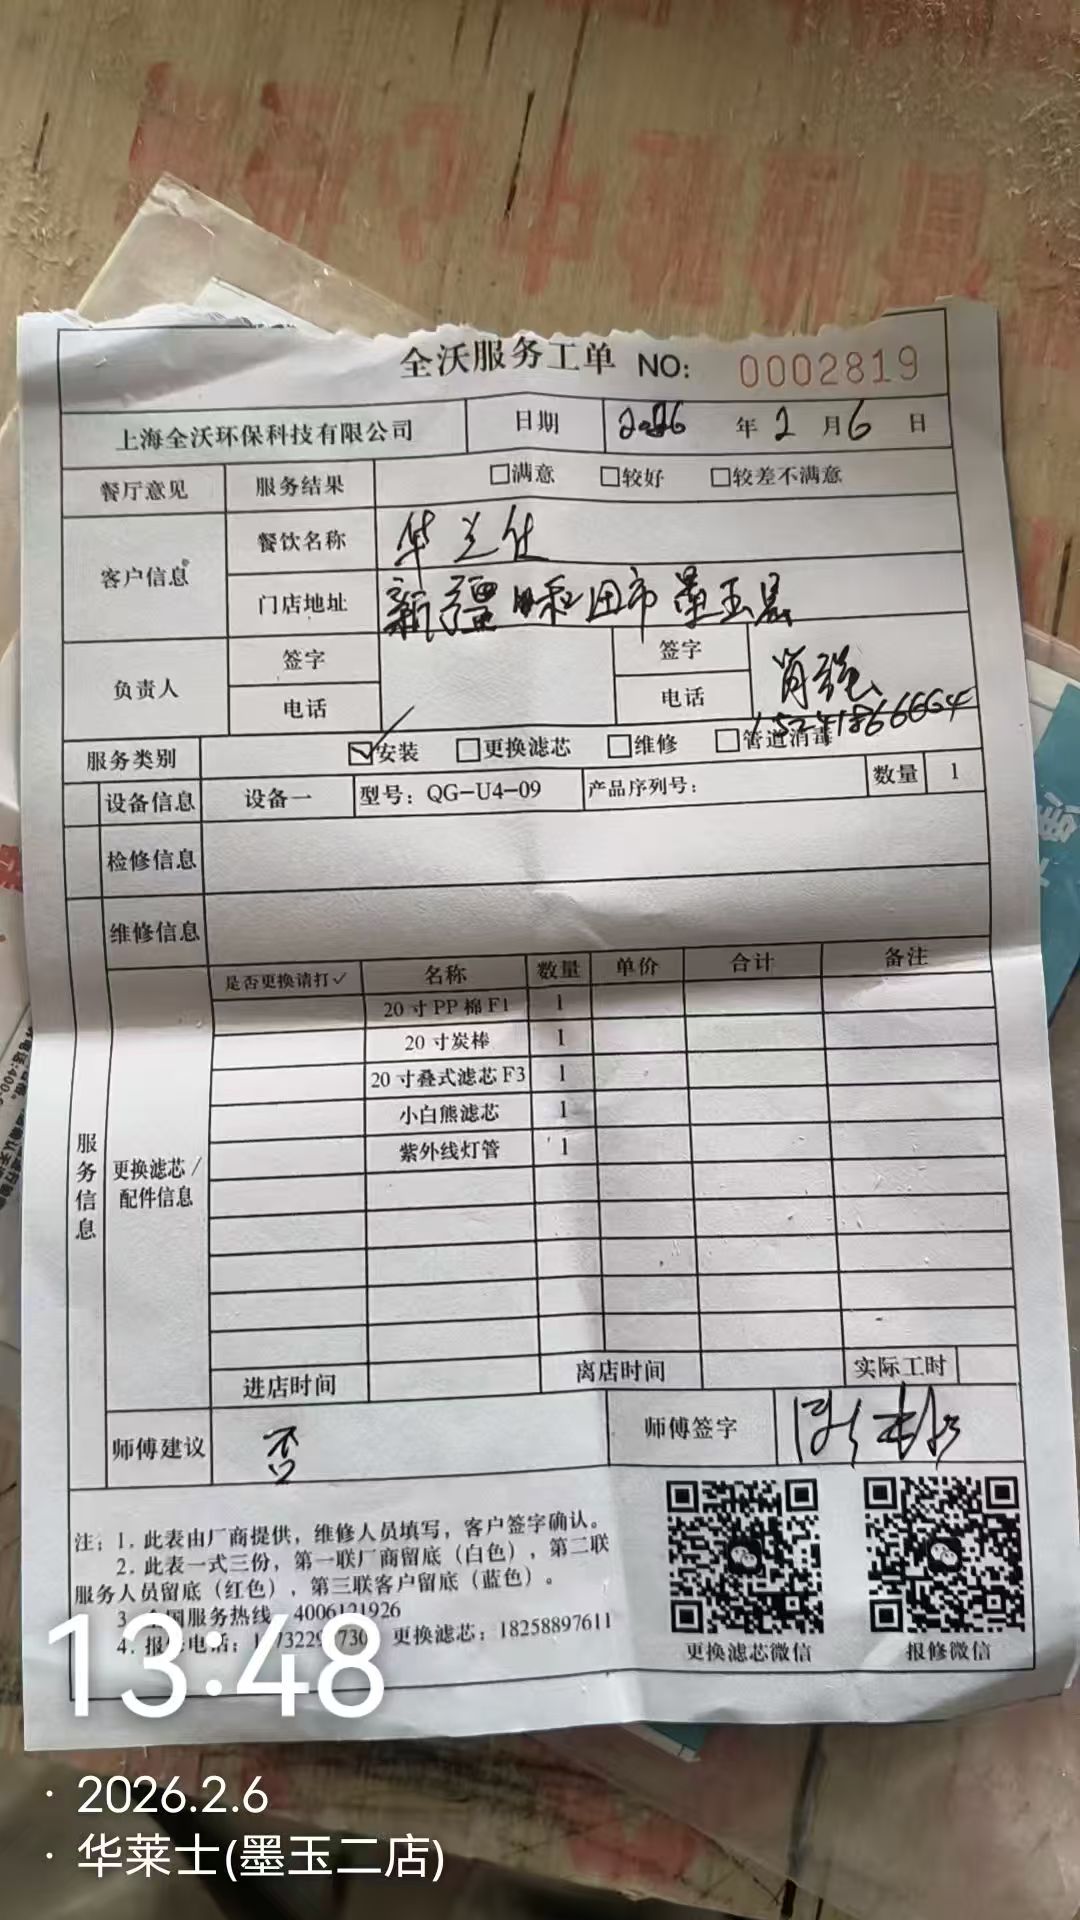 全沃服务工单 NO: 0002819
上海全沃环保科技有限公司 日期 2026 年 2 月 6 日
餐厅意见 服务结果 □满意 □较好 □较差不满意
客户信息 餐饮名称 华兰仕
门店地址 新疆和田市墨玉县
负责人 签字 签字 肖强
电话 电话
服务类别 ☑安装 □更换滤芯 □维修 □管道消毒
设备信息 设备一 型号：QG-U4-09 产品序列号： 数量 1
检修信息
维修信息
是否更换请打✓ 名称 数量 单价 合计 备注
20寸PP棉F1 1
20寸炭棒 1
20寸叠式滤芯F3 1
小白熊滤芯 1
紫外线灯管 1
服务信息
更换滤芯/
配件信息
进店时间 离店时间 实际工时
师傅建议 否 师傅签字
注：1. 此表由厂商提供，维修人员填写，客户签字确认。
2. 此表一式三份，第一联厂商留底（白色），第二联
服务人员留底（红色），第三联客户留底（蓝色）。
3. 国服务热线 4006121926
4. 报 电话： 更换滤芯：18258897611
更换滤芯微信 报修微信
13:48
· 2026.2.6
· 华莱士(墨玉二店)